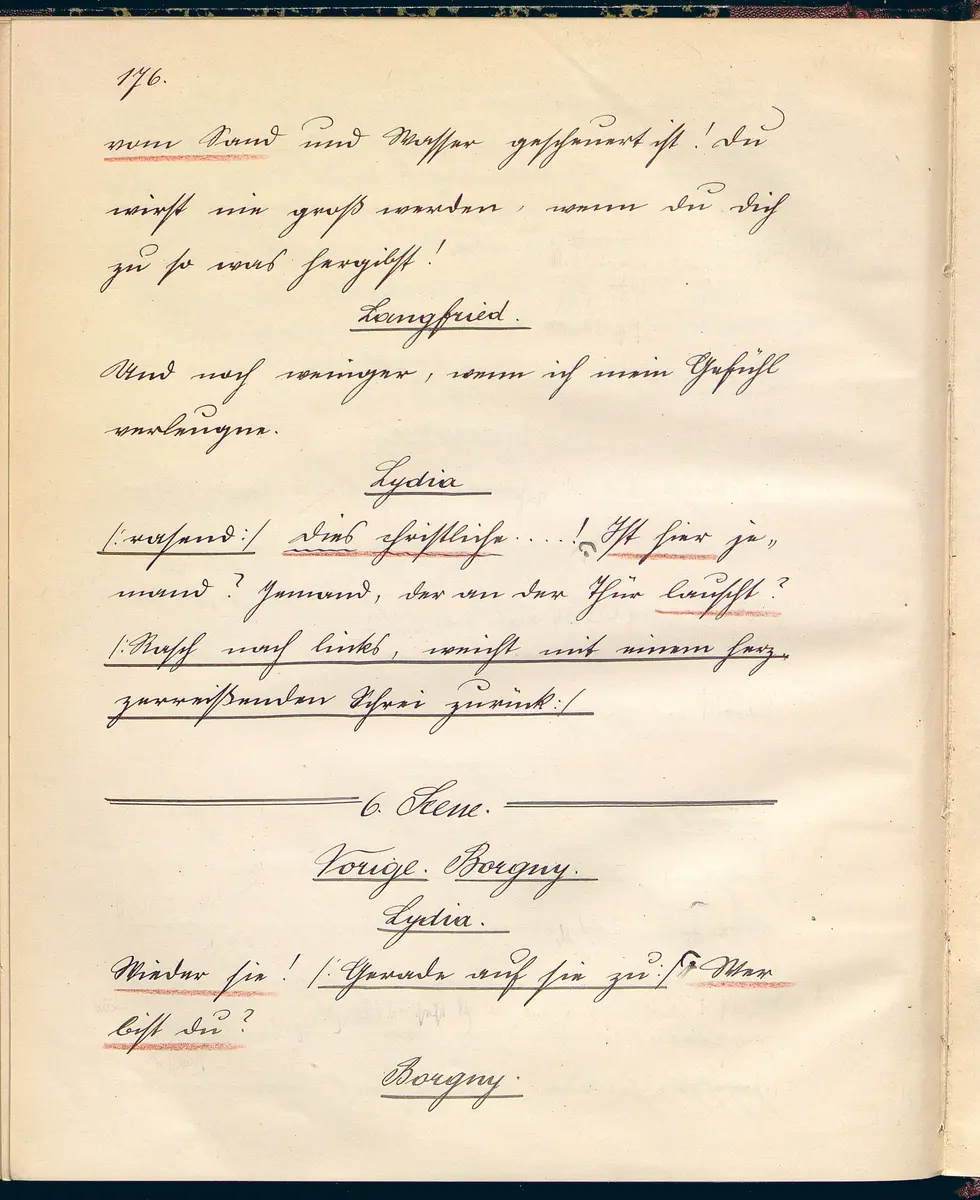 176.
vom Sand und Wasser gescheuert ist! Du
wirst nie groß werden, wenn du dich
zu so was hergibst!
Langfried.
Und noch weniger, wenn ich mein Gefühl
verleugne.
Lydia
/:rasend:/ Dies christliche.....! Ist hier je„
mand? Jemand, der an der Thür lauscht?
/:Rasch nach links, weicht mit einem herz„
zerreißenden Schrei zurück:/
6. Scene.
Vorige. Borgny.
Lydia.
Wieder sie! /:Gerade auf sie zu:/ Wer
bist du?
Borgny.